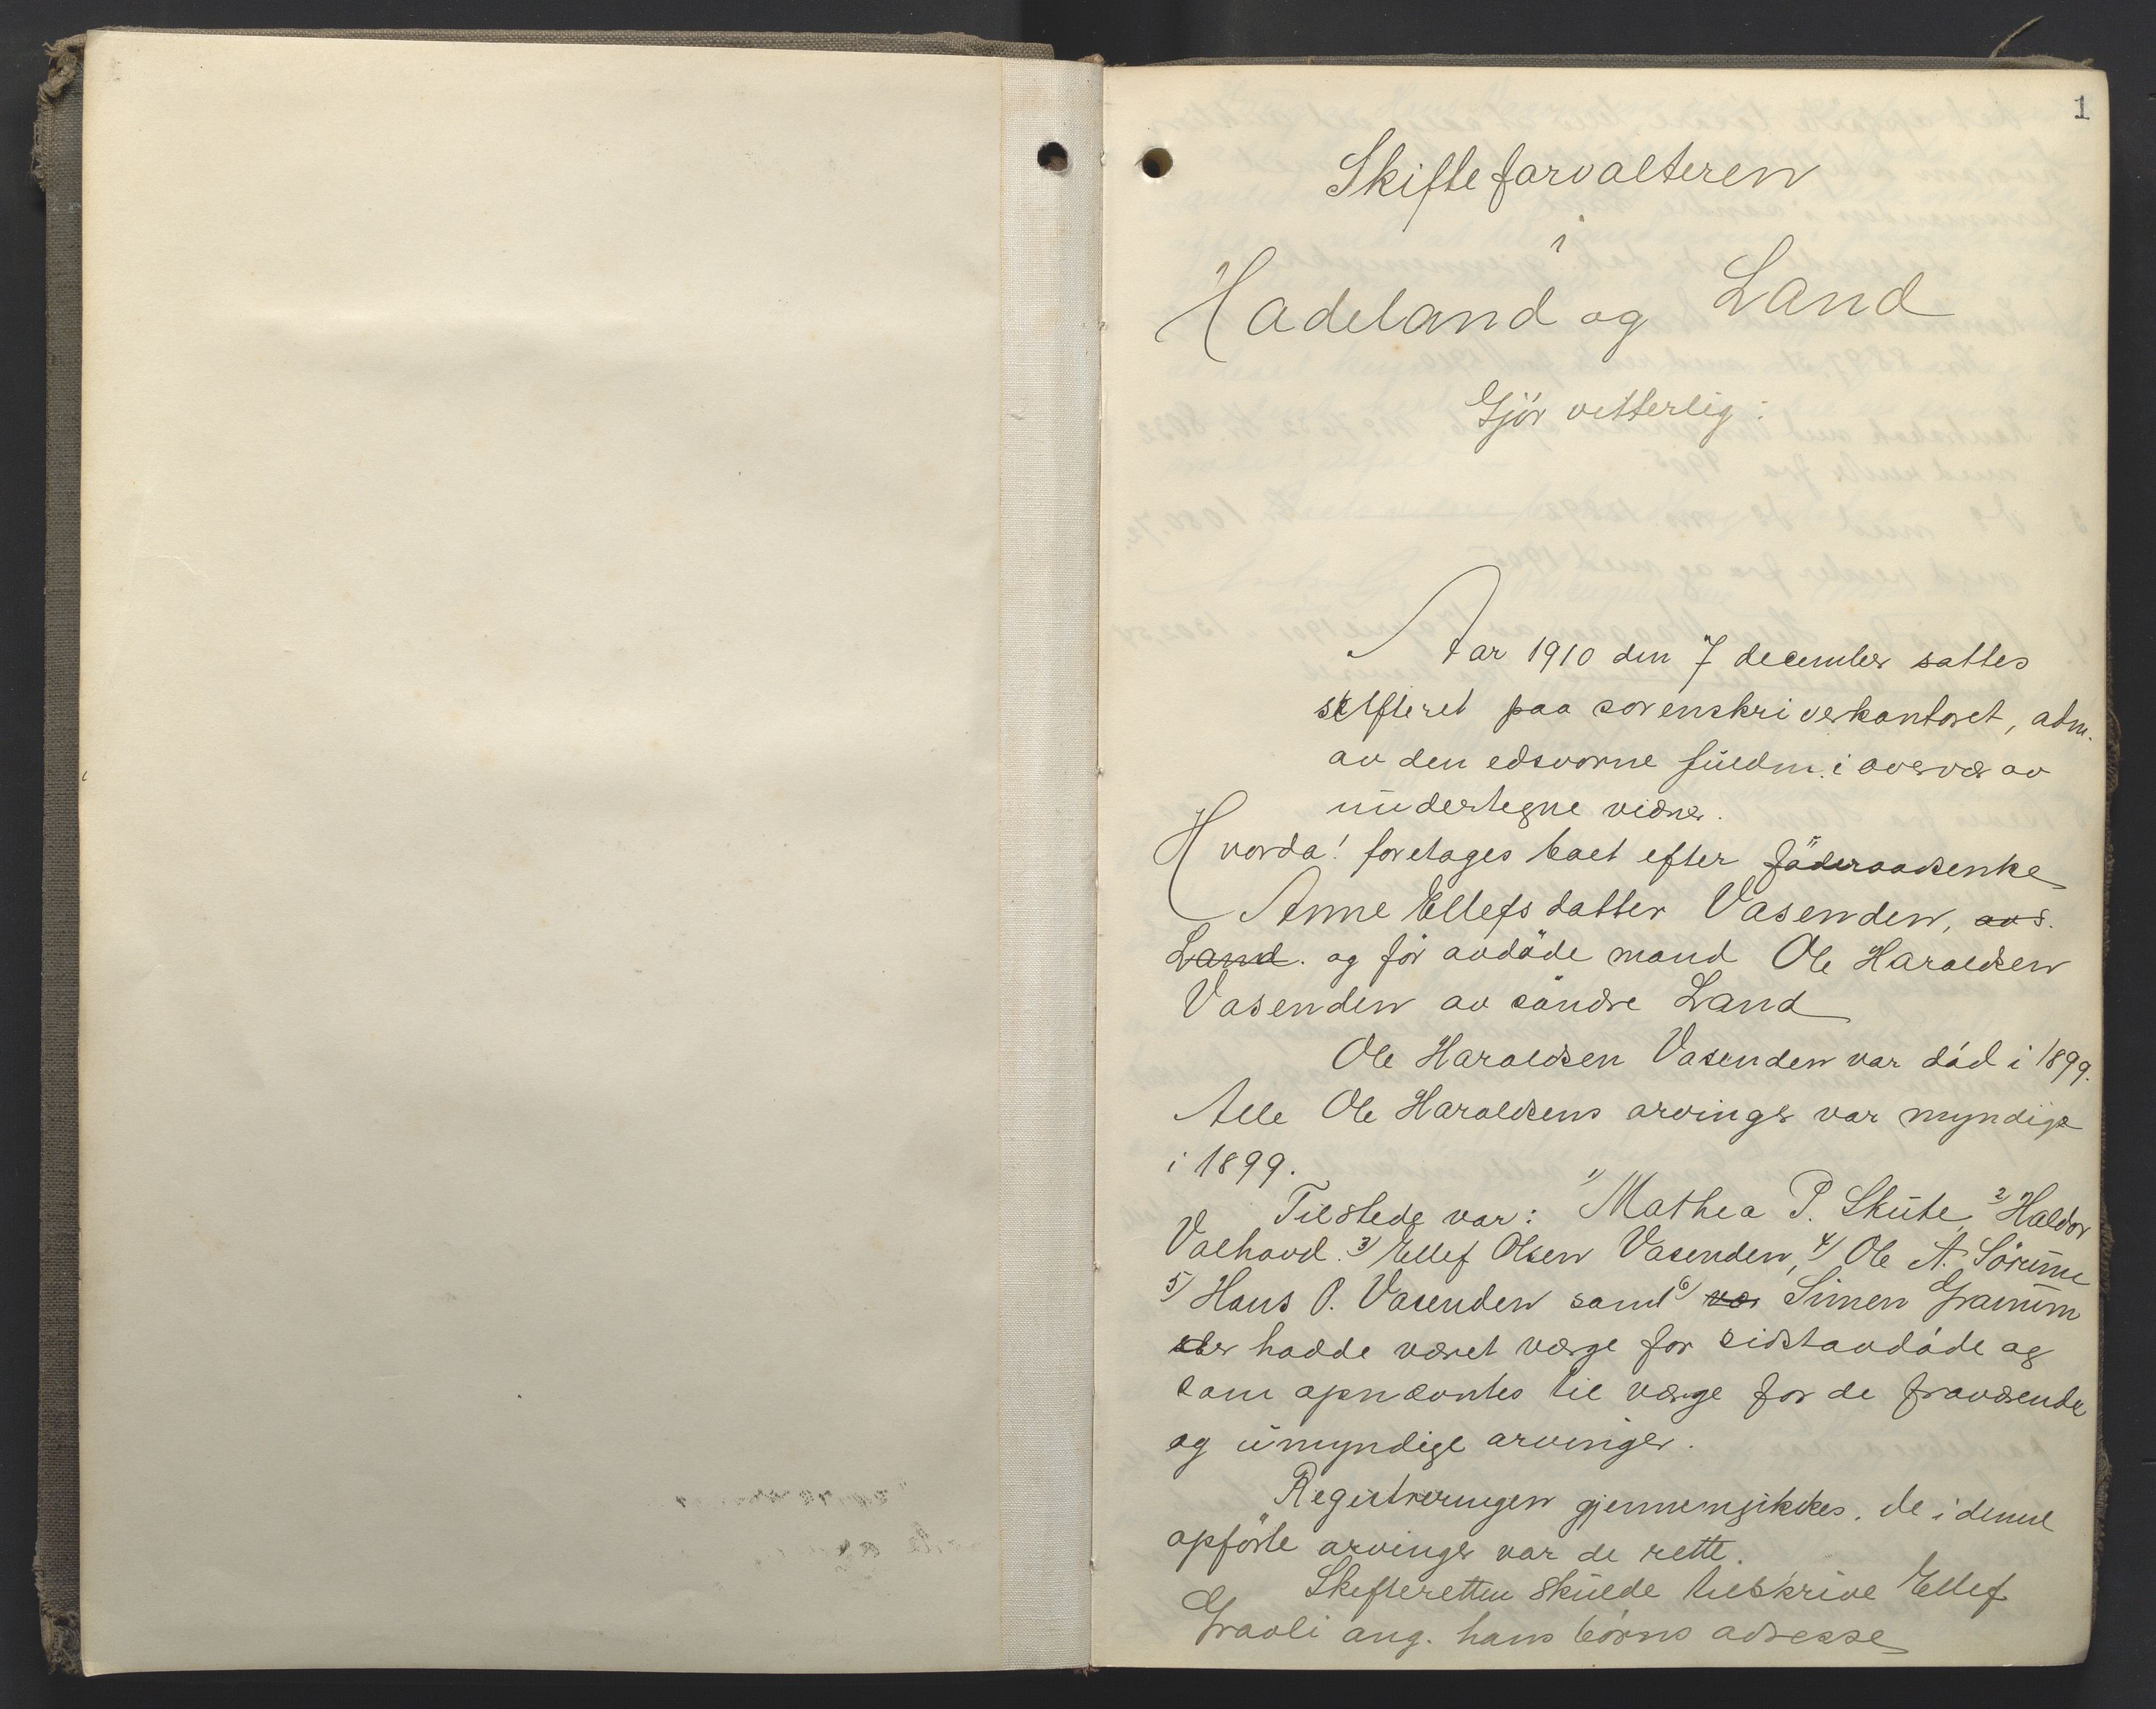 1
Skifteforvalteren
i
Hadeland og Land
Gjör vitterlig:
Aar 1910 den 7 december sattes
skifteret paa sorenskriverkontoret, adm.
av den edsvorne fuldm. i overvær av
undertegne vidner.
Hvorda! foretages boet efter föderaadsenke
Anne Ellefsdatter Vasenden, av s.
Land. og för avdöde mand Ole Haraldsen
Vasenden av söndre Land
Ole Haraldsen Vasenden var död i 1899.
Alle Ole Haraldsens arvinger var myndige
i 1899.
Tilstede var: 1) Mathea P. Skute, 2) Haldor
Valhovd. 3) Ellef Olsen Vasenden, 4) Ole A. Sörum
5) Hans P. Vasenden samt 6) var Simen Gramum
der hadde været værge for sidstavdöde og
som opnævntes til værge for de fraværende
og umyndige arvinger.
Registreringen gjennemgikkes. De i denne
opförte arvinger var de rette.
Skifteretten skulde tilskrive Ellef
Gravli ang. hans börns adresse